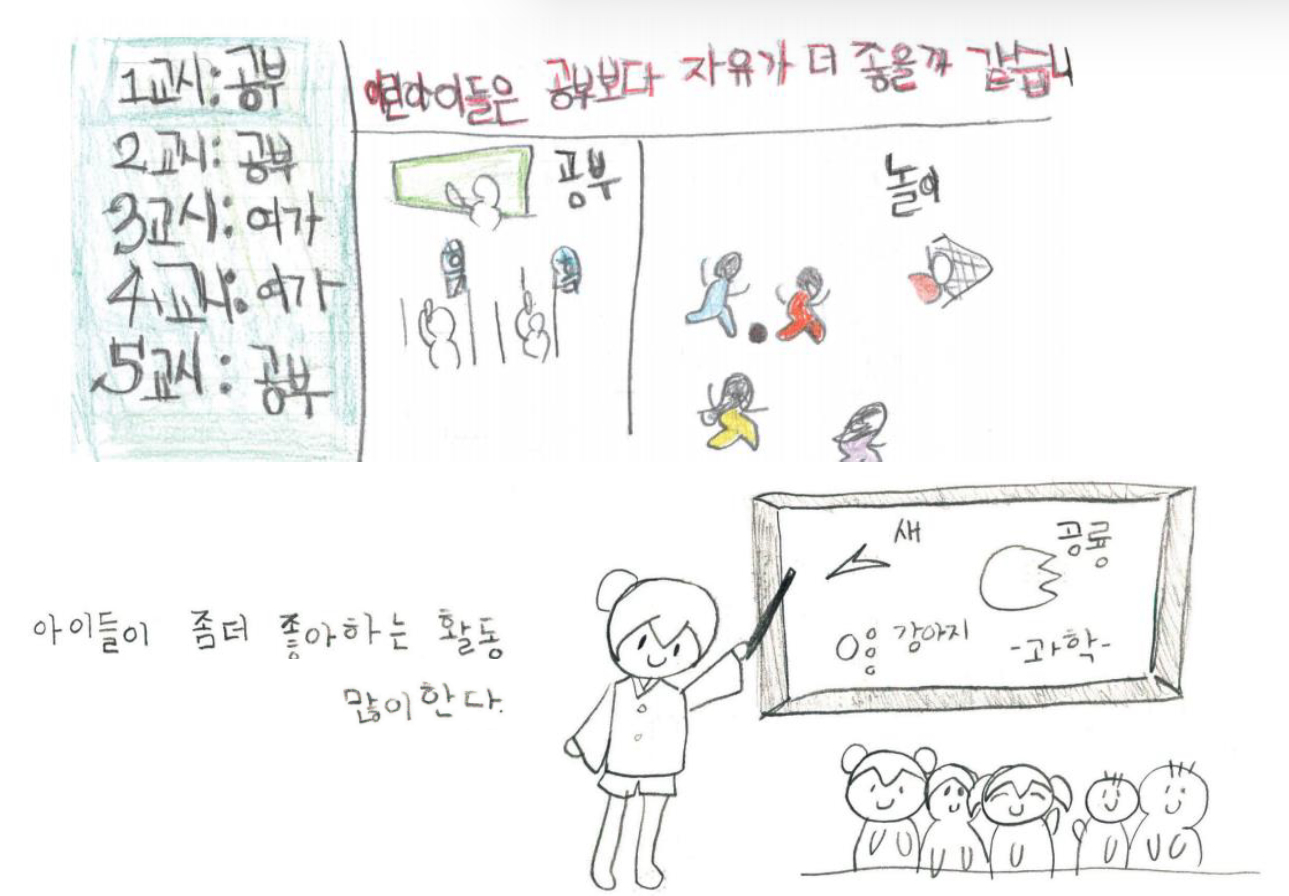 1교시: 공부
2교시: 공부
3교시: 여가
4교시: 여가
5교시: 공부
어린아이들은 공부보다 자유가 더 좋을까 같습니
공부
놀이
아이들이 좀더 좋아하는 활동
많이 한다.
새
공룡
강아지
-과학-